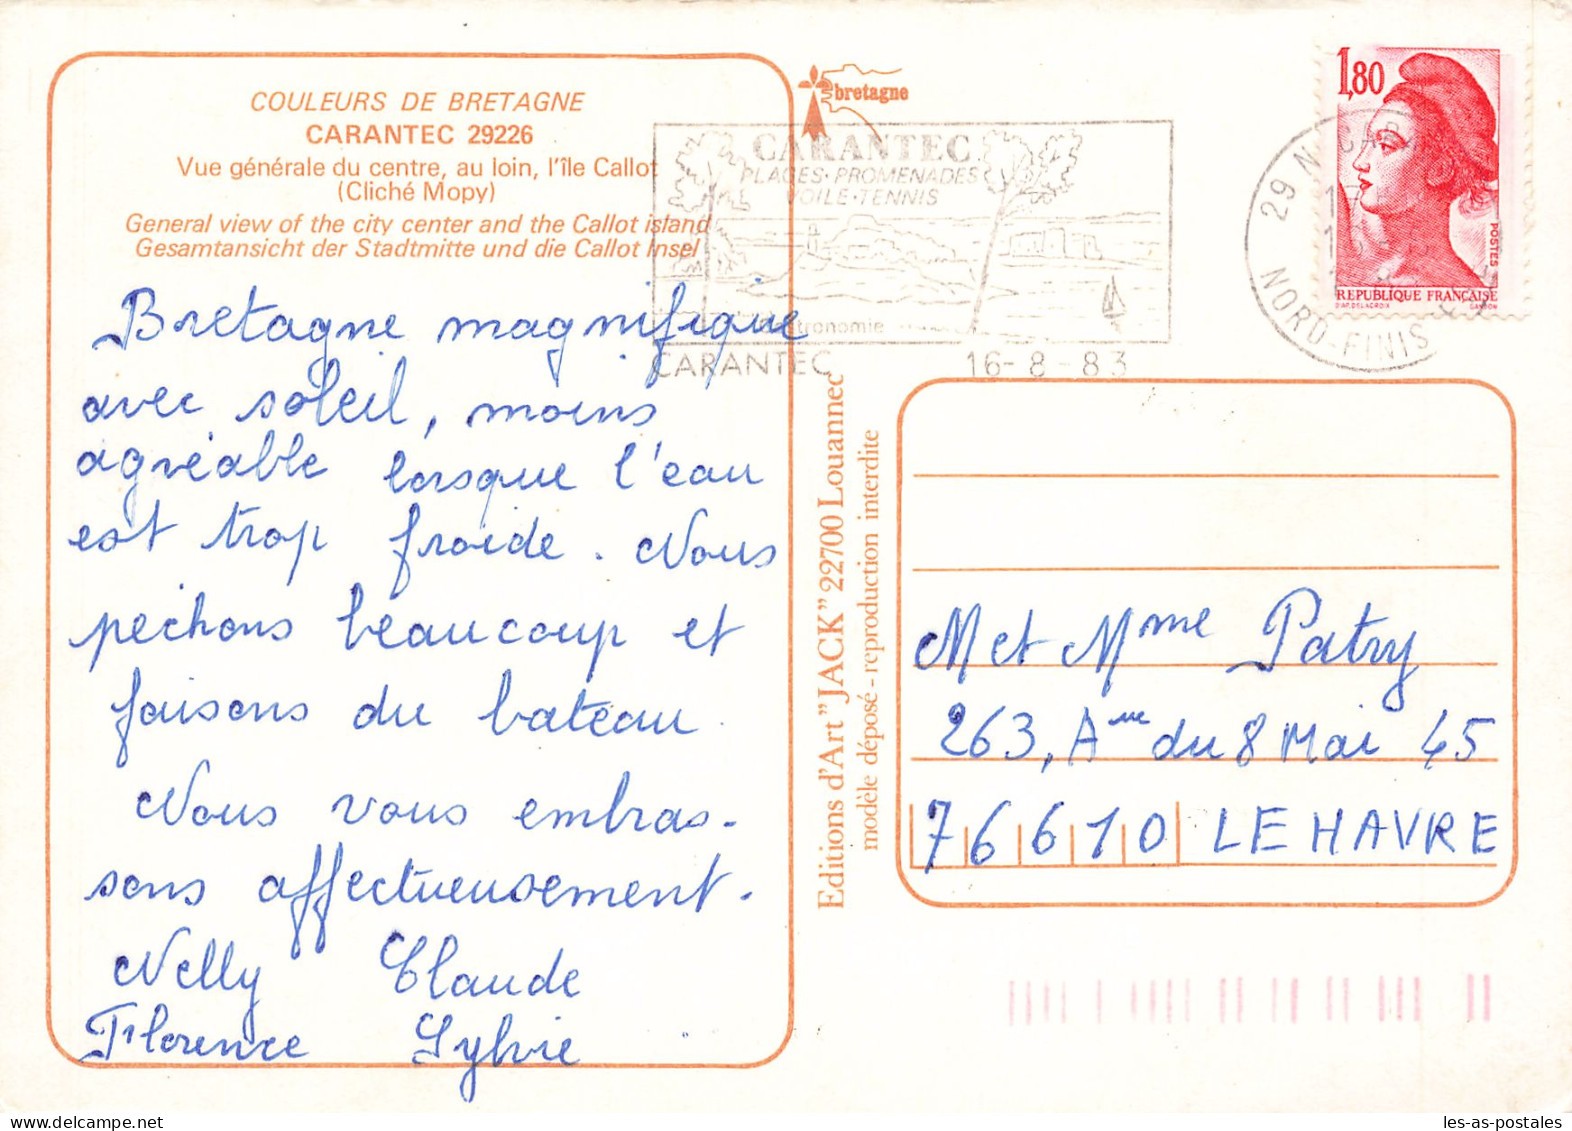 COULEURS DE BRETAGNE
CARANTEC 29226
Vue générale du centre, au loin, l'île Callot
(Cliché Mopy)
General view of the city center and the Callot island
Gesamtansicht der Stadtmitte und die Callot Insel
Bretagne magnifique
avec soleil, moins
agréable lorsque l'eau
est trop froide. Nous
pêchons beaucoup et
faisons du bateau.
Nous vous embras-
sons affectueusement.
Nelly Claude
Florence Sylvie
bretagne
CARANTEC
PLAGES·PROMENADES
VOILE·TENNIS
CARANTEC 16-8-83
29 N
NORD-FINIS
1,80
POSTES
REPUBLIQUE FRANÇAISE
D'AP. DELACROIX GANDON
Editions d'Art "JACK" 22700 Louannec
modèle déposé - reproduction interdite
M et Mme Patry
263, Aue du 8 Mai 45
76610 LE HAVRE
les-as-postales